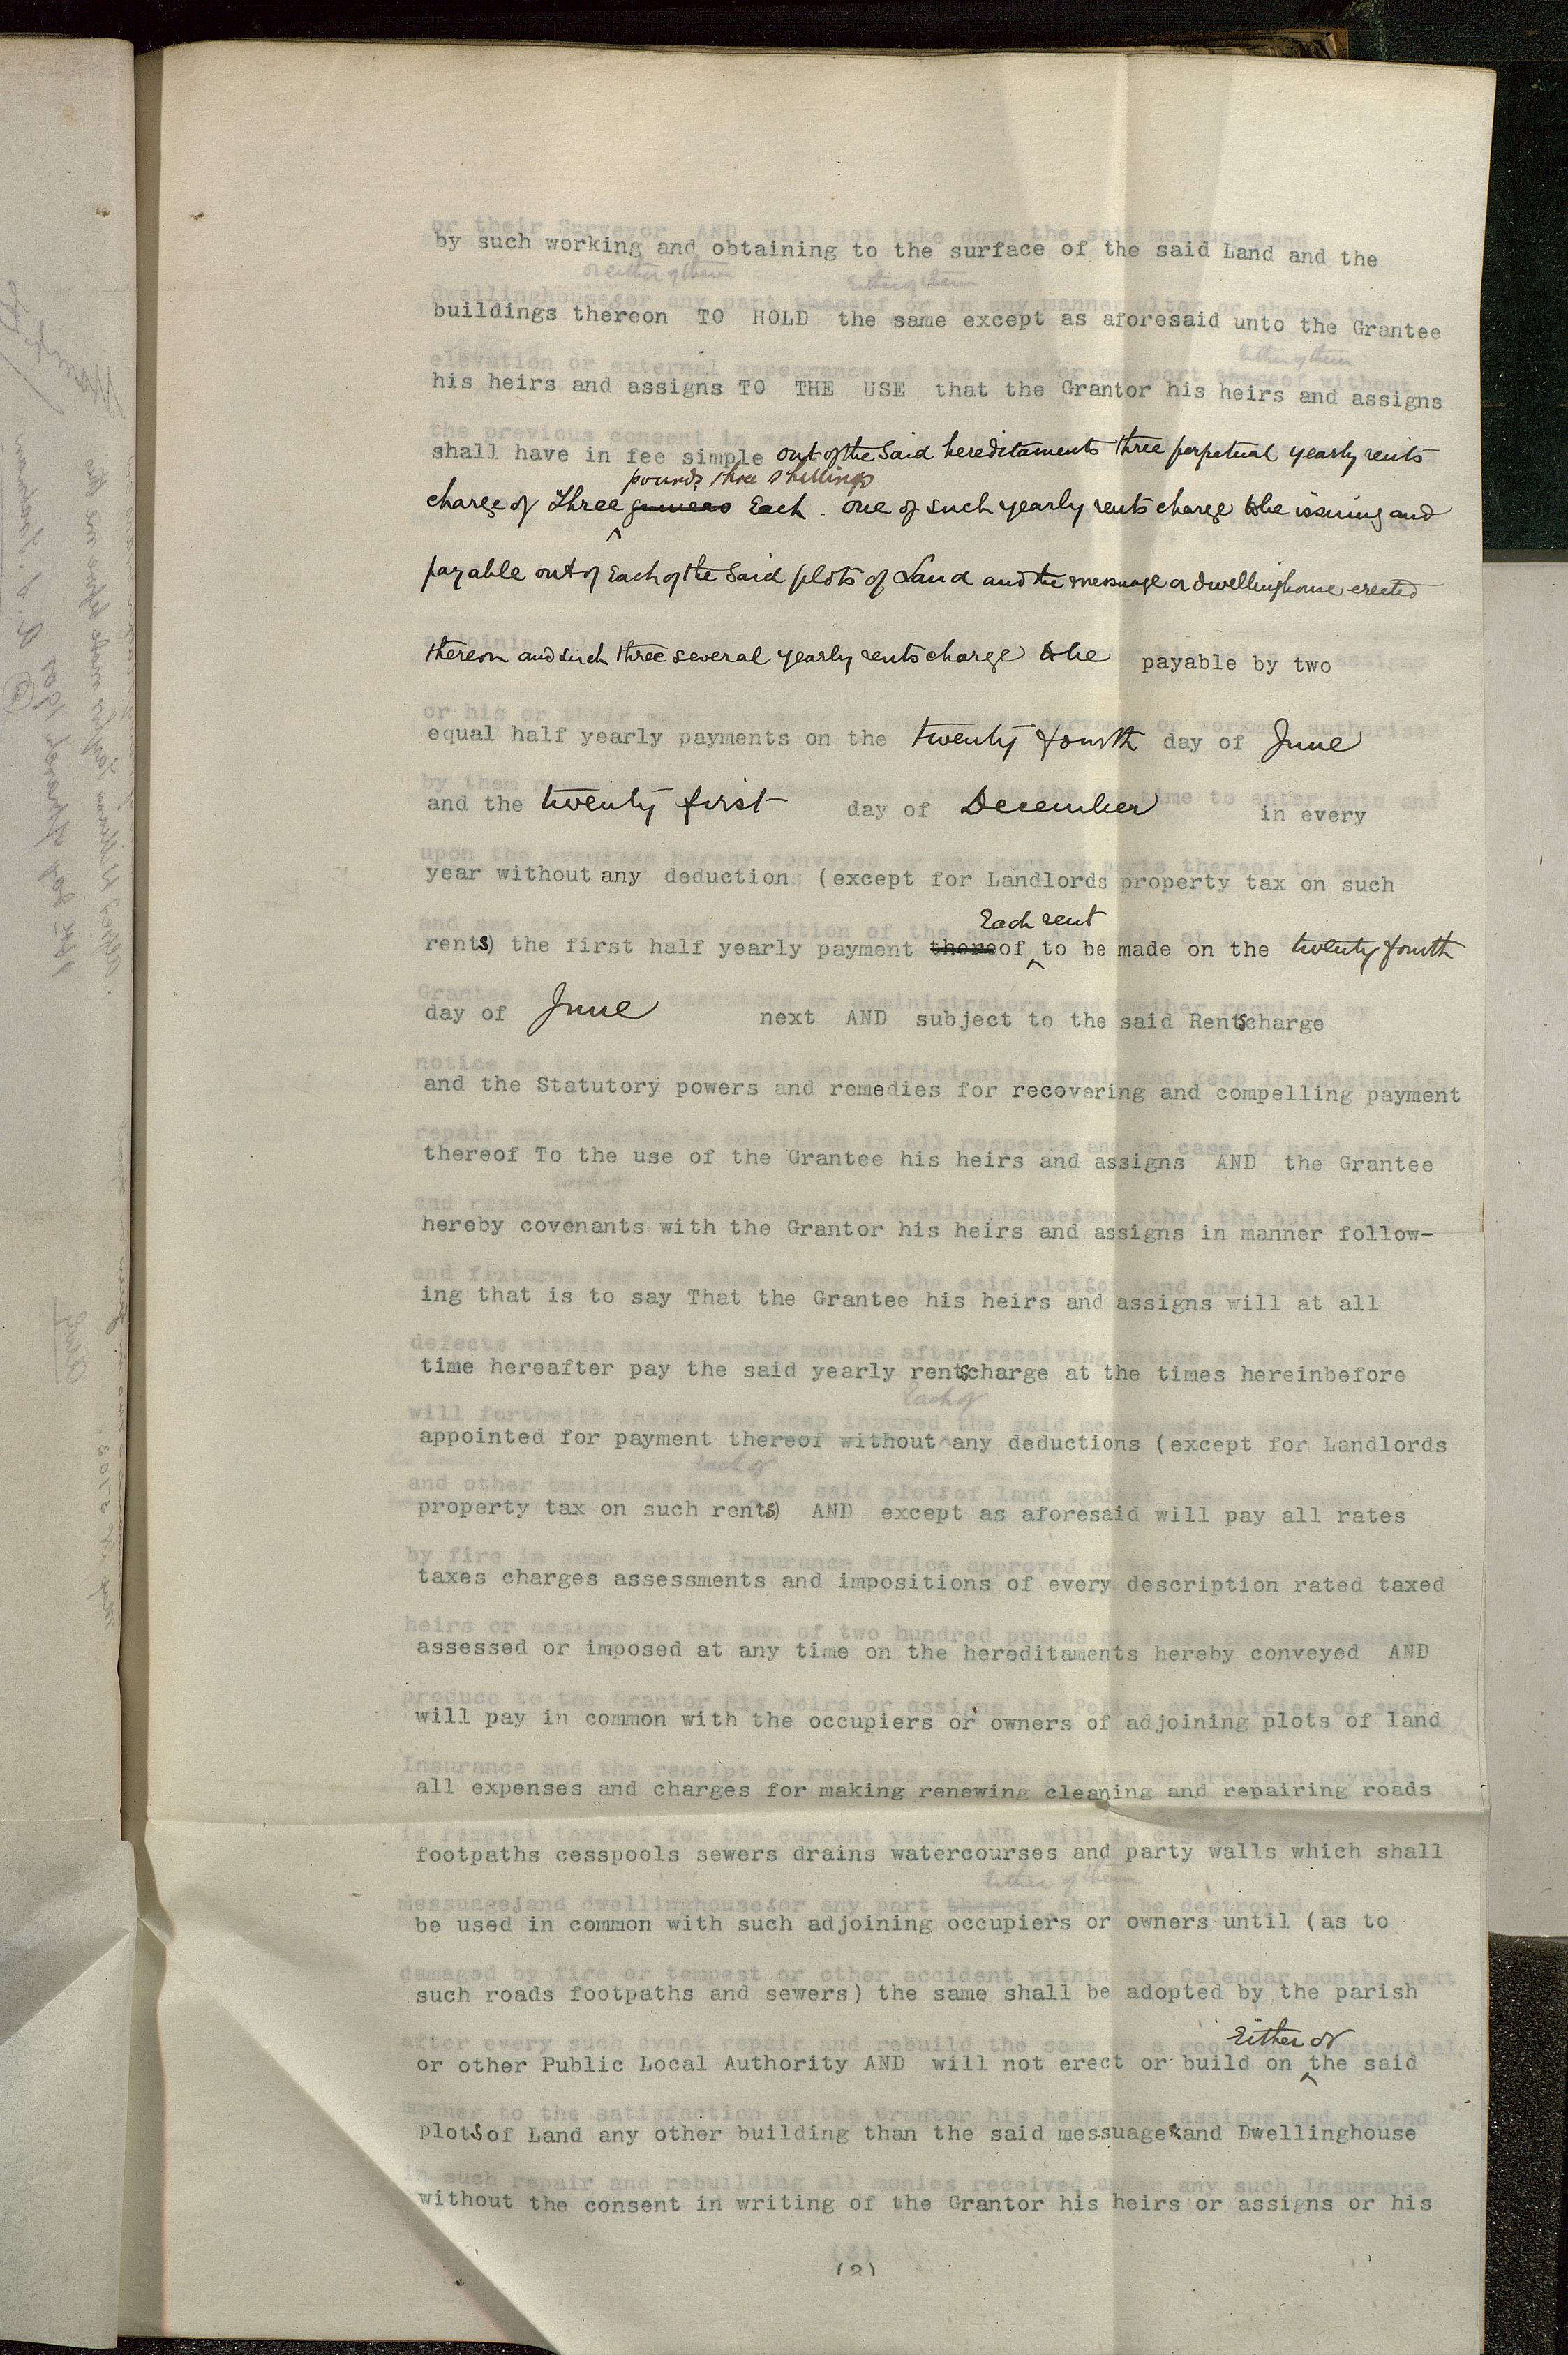 by such working and obtaining to the surface of the said Land and the
buildings thereon TO HOLD the same except as aforesaid unto the Grantee
his heirs and assigns TO THE USE that the Grantor his heirs and assigns
shall have in fee simple out of the said hereditaments three perpetual yearly rents
pounds three shillings
charge of Three guineas Each. one of such yearly rents charge to be issuing and
payable out of Each of the said plots of Land and the messuage or dwellinghouse erected
thereon and such three several yearly rents charge to be payable by two
equal half yearly payments on the twenty fourth day of June
and the twenty first day of December in every
year without any deductions (except for Landlords property tax on such
Each rent
rents) the first half yearly payment thereof to be made on the twenty fourth
day of June next AND subject to the said Rentscharge
and the Statutory powers and remedies for recovering and compelling payment
thereof To the use of the Grantee his heirs and assigns AND the Grantee
hereby covenants with the Grantor his heirs and assigns in manner follow-
ing that is to say That the Grantee his heirs and assigns will at all
time hereafter pay the said yearly rentscharge at the times hereinbefore
appointed for payment thereof without any deductions (except for Landlords
property tax on such rents) AND except as aforesaid will pay all rates
taxes charges assessments and impositions of every description rated taxed
assessed or imposed at any time on the hereditaments hereby conveyed AND
will pay in common with the occupiers or owners of adjoining plots of land
all expenses and charges for making renewing cleaning and repairing roads
footpaths cesspools sewers drains watercourses and party walls which shall
be used in common with such adjoining occupiers or owners until (as to
such roads footpaths and sewers) the same shall be adopted by the parish
Either of
or other Public Local Authority AND will not erect or build on the said
plots of Land any other building than the said messuages and Dwellinghouse
without the consent in writing of the Grantor his heirs or assigns or his
(2)